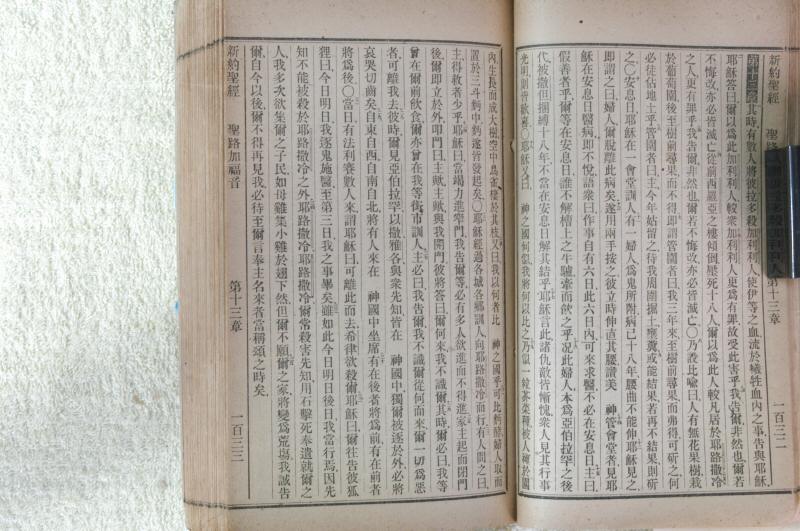 新約聖經 聖路 第十三章 一百三二
第十三章 其時有數人將彼拉多殺加利利人使伊等之血流於犧牲血內之事告與耶穌
耶穌答曰爾以爲此加利利人較衆加利利人更爲有罪故受此害乎我告爾非然也爾若
不悔改亦必皆滅亡從前西羅亞之樓傾倒壓死十八人爾以爲此人較凡居於耶路撒冷
之人更有罪乎我告爾非然也爾不悔改亦必皆滅亡〇乃設比喻曰人有無花果樹栽
於葡萄園後至樹前尋果而不得即謂管園者曰我三年來至樹前尋果而弗得可斫之何
必徒佔地土乎管園者曰主今年姑留之待我周圍掘土壅糞或能結果若再不結果則斫
之〇安息日耶穌在一會堂訓人有一婦人爲鬼所附病已十八年腰曲不能伸耶穌見之
即謂之曰婦人爾脫離此病矣遂用兩手按之彼立時伸直其腰讚美 神管會堂者見耶
穌在安息日醫病即不悅語衆曰作事自有六日此六日內可來求醫不必在安息日主曰
假善者乎爾等在安息日誰不解槽上之牛驢牽而飲之乎况此婦人本爲亞伯拉罕之後
代被撒但捆縛十八年不當在安息日解其結乎耶穌言此諸仇敵皆慚愧衆人見其行事
光明則皆歡喜〇耶穌又曰 神之國何似我將何以比之乃似一粒芥菜種被人種於園
內生長而成大樹空中鳥雀棲於其枝又曰我以何者比 神之國乎可比麪酵婦人取而
置於三斗麪中麪遂皆發起矣〇耶穌經過各城各鄉訓人向耶路撒冷而行有人問之曰
主得救者少乎耶穌曰當竭力進窄門我告爾等必有多人欲進而不得進家主起而閉門
後爾即立於外叩門曰主歟主歟與我開門彼將答曰爾何來我不識爾其時爾必曰我等
曾在爾前飲食爾亦曾在我等街市訓人主必曰我告爾我不識爾從何而來爾一切爲惡
者可離我去彼時爾見亞伯拉罕以撒雅各與衆先知皆在 神國中獨爾被逐於外必將
哀哭切齒矣自東自西自南自北將有人來在 神國中坐席有在後者將爲前有在前者
將爲後〇當日有法利賽數人來謂耶穌曰可離此而去希律欲殺爾耶穌曰爾往告彼狐
狸曰今日明日我逐鬼施醫至第三日我之事畢矣雖如此今日明日後日我當行焉因先
知不能被殺於耶路撒冷之外耶路撒冷耶路撒冷爾常殺害先知用石擊死奉遣就爾之
人我多次欲集爾之子民如母雞集小雞於翅下然但爾不願爾之家將變爲荒塲我誠告
爾自今以後爾不得再見我必待至爾言奉主名來者當稱頌之時矣
新約聖經 聖路加福音 第十三章 一百三三